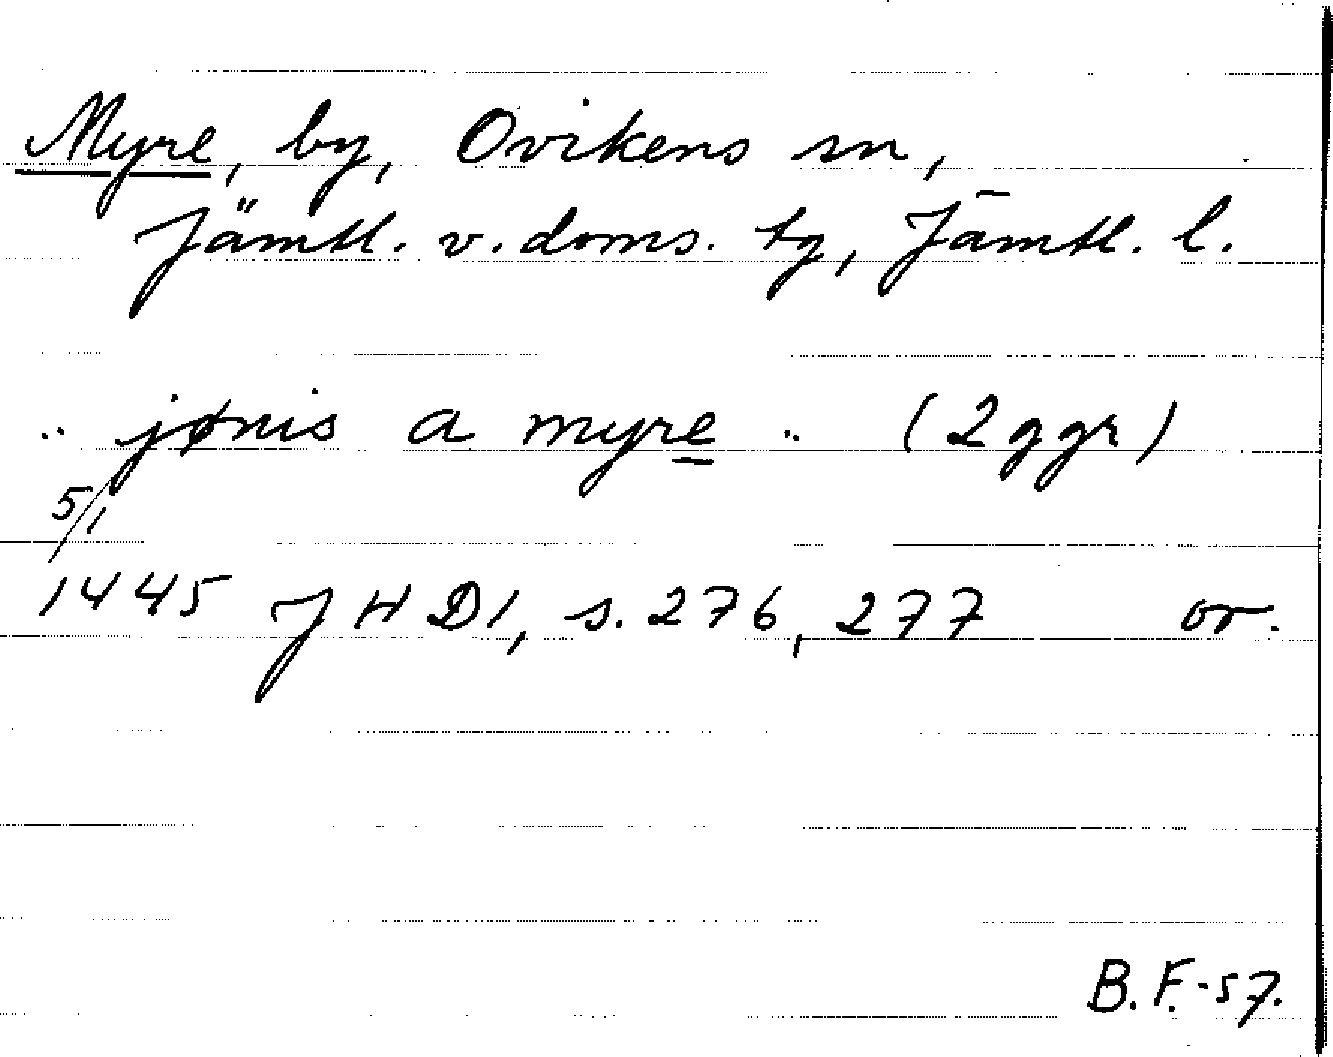 Myre, by, Ovikens sn,
Jämtl. v. doms. tg, Jämtl. l.
.. jønis a myre .. (2 ggr)
5/1
1445 JHD1, s. 276, 277 or.
B.F.-57.